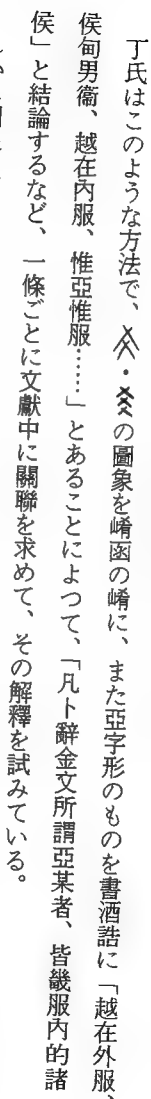 丁氏はこのような方法で、・の圖象を崤凾の崤に、また亞字形のものを書酒誥に「越在外服、
侯甸男衞、越在內服、惟亞惟服……」とあることによつて、「凡卜辭金文所謂亞某者、皆畿服內的諸
侯」と結論するなど、一條ごとに文獻中に關聯を求めて、その解釋を試みている。